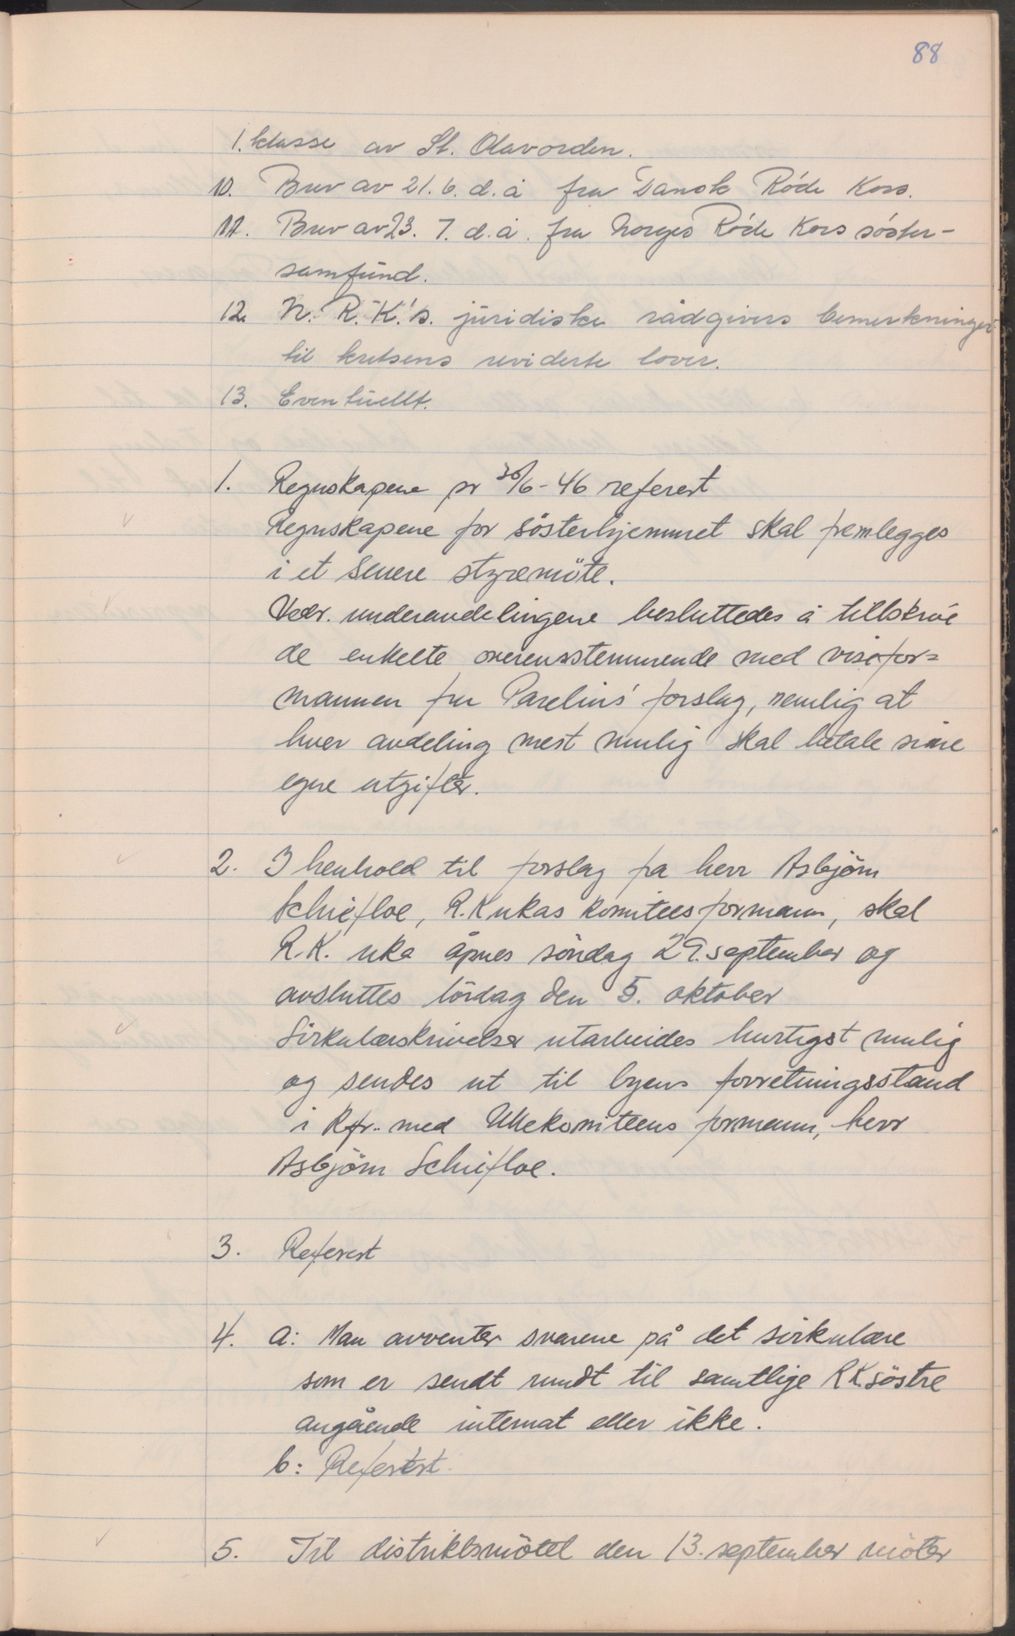 88
1. klasse av St. Olavorden.
10. Brev av 21.6. d.å fra Dansk Røde Kors.
11. Brev av 23. 7. d.å. fra Norges Røde Kors søster-
samfund.
12. N. R. K.'s. juridiske rådgivers bemerkninger
til kretsens reviderte lover.
13. Eventuellt.
1. Regnskapene pr 30/6 - 46 referert
Regnskapene for søsterhjemmet skal fremlegges
i et senere styremöte.
Vedr. underavdelingene besluttedes å tillskrive
de enkelte overensstemmende med visefor=
mannen fru Parelius' forslag, nemlig at
hver avdeling mest mulig skal betale sine
egne utgifter.
2. I henhold til forslag fra herr Asbjörn
Schiefloe, R.K ukas komitees formann, skal
R.K. uka åpnes söndag 29. september og
avsluttes lördag den 5. oktober
Sirkulærskrivelser utarbeides hurtigst mulig
og sendes ut til byens forretningsstand
i kfr. med Ukekomiteens formann, herr
Asbjörn Schiefloe.
3. Referert
4. a: Man avventer svarene på det sirkulære
som er sendt rundt til samtlige R.K.söstre
angående internat eller ikke.
b: Referert.
5. Til distriktsmötet den 13. september möter